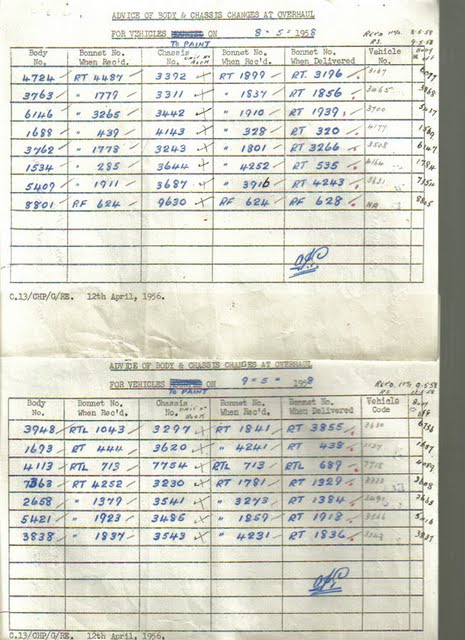 ADVICE OF BODY & CHASSIS CHANGES AT OVERHAUL
FOR VEHICLES ON 8-5-1958 8-5-58
TO PAINT 9-5-58
Body No. Bonnet No. When Rec'd. Chassis No. Bonnet No. When Rec'd. Bonnet No. When Delivered Vehicle No. Body
4724 RT 4487 3392 RT 1899 RT 3196 3167
3763 " 1779 3311 " 1837 RT 1856 3265
6146 " 3265 3442 " 1910 RT 1939 3700
1688 " 439 4143 " 328 RT 320 4177
3762 " 1778 3243 " 1801 RT 3266 3508
1534 " 285 3644 " 4252 RT 535
5409 " 1911 3687 " 3916 RT 4243 3831
8801 RF 624 9630 RF 624 RF 628 NA
C.13/CHP/G/RE. 12th April, 1956.
ADVICE OF BODY & CHASSIS CHANGES AT OVERHAUL
FOR VEHICLES ON 9-5-1958
TO PAINT
Body No. Bonnet No. When Rec'd. Chassis No. Bonnet No. When Rec'd. Bonnet No. When Delivered Vehicle Code
3948 RTL 1043 3297 RT 1841 RT 3855
1693 RT 444 3620 " 4241 RT 438
4113 RTL 713 7754 RTL 713 RTL 689 7718
7363 RT 4252 3230 RT 1781 RT 1329
2658 " 1379 3541 " 3273 RT 1384
5421 " 1923 3485 " 1859 RT 1918 5416
3838 " 1837 3543 " 4231 RT 1836 3837
C.13/CHP/G/RE. 12th April, 1956.